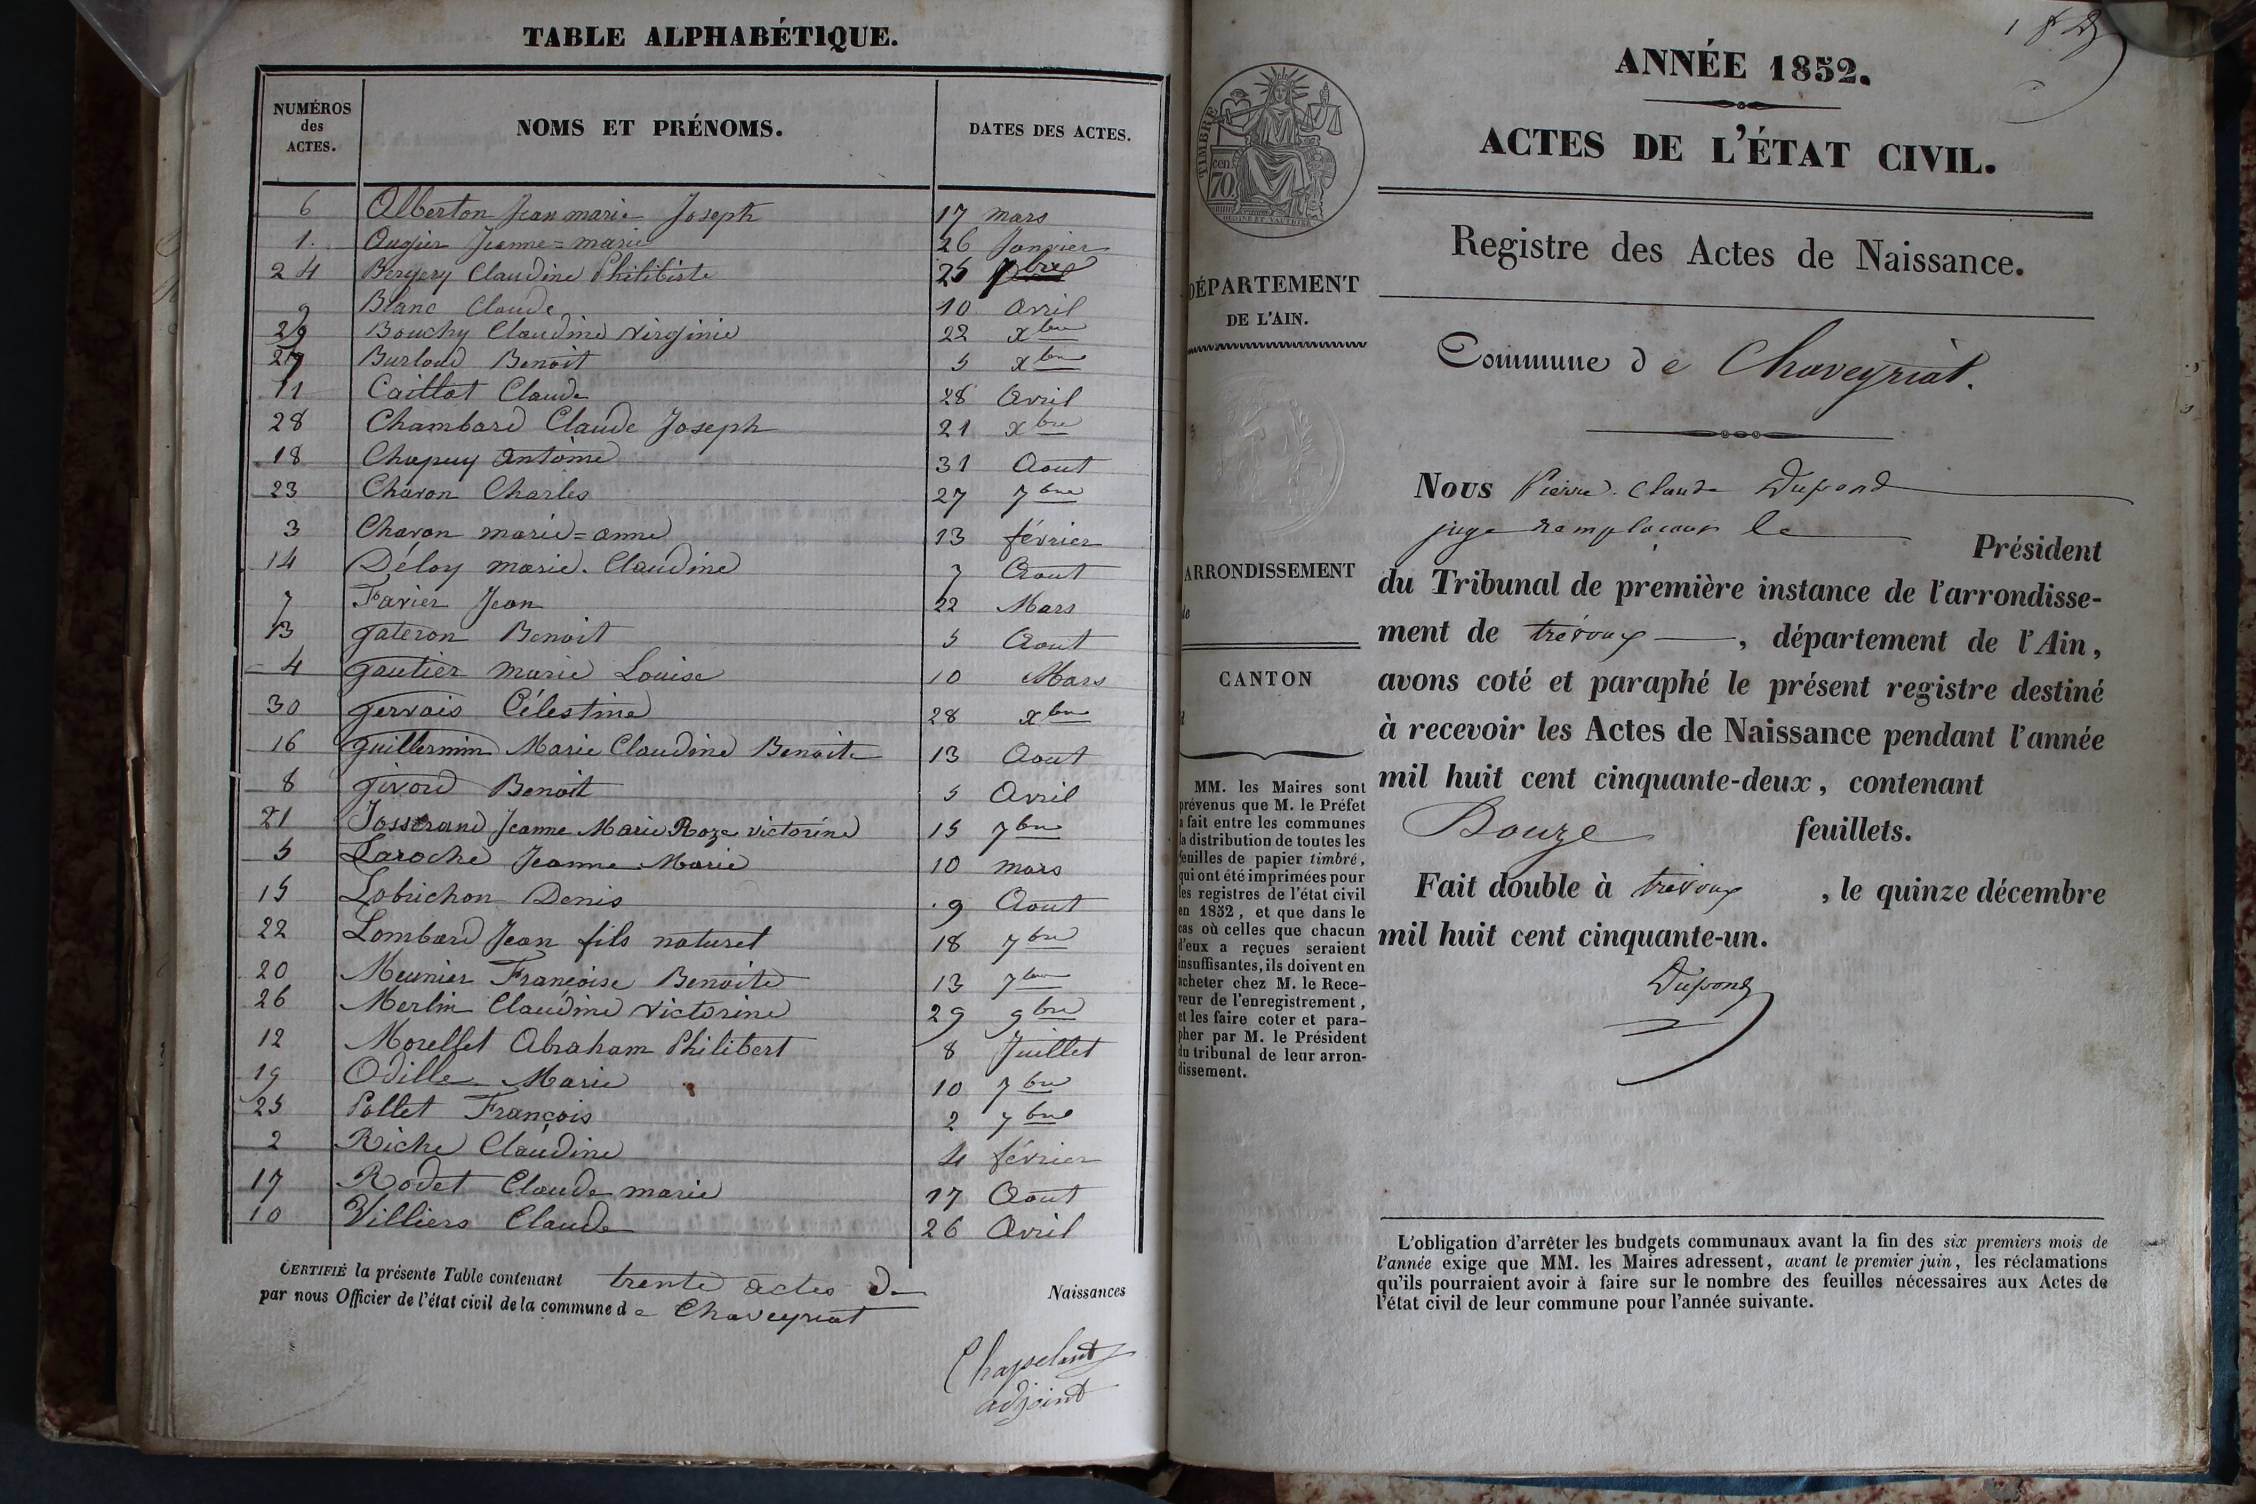 TABLE ALPHABÉTIQUE.
NUMÉROS des ACTES. NOMS ET PRÉNOMS. DATES DES ACTES.
6 Alberton Jean marie Joseph 17 mars
1. Augier Jeanne=marie 26 Janvier
24 Bergery Claudine Philiberte 25 7bre
9 Blanc Claude 10 avril
29 Bouchy Claudine Virginie 22 xbre
27 Burloud Benoit 5 xbre
11 Caillat Claude 28 avril
28 Chambard Claude Joseph 21 xbre
18 Chapuy antoine 31 Aout
23 Chavon Charles 27 7bre
3 Chavon marie=anne 13 février
14 Déloy marie. Claudine 7 Aout
7 Favier Jean 22 Mars
13 gateron Benoit 5 Aout
4 gautier marie Louise 10 Mars
30 gervais Célestine 28 xbre
16 guillermin Marie Claudine Benoite 13 Aout
8 givord Benoit 5 Avril
21 Josserand Jeanne Marie Roze victorine 15 7bre
5 Laroche Jeanne Marie 10 mars
15 Lobrichon Denis 9 Aout
22 Lombard Jean fils naturel 18 7bre
20 Meunier Françoise Benoite 13 7bre
26 Merlin Claudine Victorine 29 9bre
12 Morellet Abraham Philibert 8 Juillet
19 Odille Marie 10 7bre
25 Pollet François 2 7bre
2 Riche Claudine 4 février
17 Rodet Claude marie 17 Aout
10 Villiers Claude 26 Avril
CERTIFIÉ la présente Table contenant trente actes de Naissances
par nous Officier de l'état civil de la commune de Chaveyriat
Chapelant
adjoint
ANNÉE 1852.
ACTES DE L'ÉTAT CIVIL.
Registre des Actes de Naissance.
Commune de Chaveyriat.
TIMBRE
70 cen
DÉPARTEMENT
DE L'AIN.
ARRONDISSEMENT
de
CANTON
d
MM. les Maires sont
prévenus que M. le Préfet
a fait entre les communes
la distribution de toutes les
feuilles de papier timbré,
qui ont été imprimées pour
les registres de l'état civil
en 1852, et que dans le
cas où celles que chacun
d'eux a reçues seraient
insuffisantes, ils doivent en
acheter chez M. le Rece-
veur de l'enregistrement,
et les faire coter et para-
pher par M. le Président
du tribunal de leur arron-
dissement.
Nous Pierre. Claude Dupond
juge remplaçant le Président
du Tribunal de première instance de l'arrondisse-
ment de trévoux, département de l'Ain,
avons coté et paraphé le présent registre destiné
à recevoir les Actes de Naissance pendant l'année
mil huit cent cinquante-deux, contenant
Douze feuillets.
Fait double à trévoux, le quinze décembre
mil huit cent cinquante-un.
Dupond
L'obligation d'arrêter les budgets communaux avant la fin des six premiers mois de
l'année exige que MM. les Maires adressent, avant le premier juin, les réclamations
qu'ils pourraient avoir à faire sur le nombre des feuilles nécessaires aux Actes de
l'état civil de leur commune pour l'année suivante.